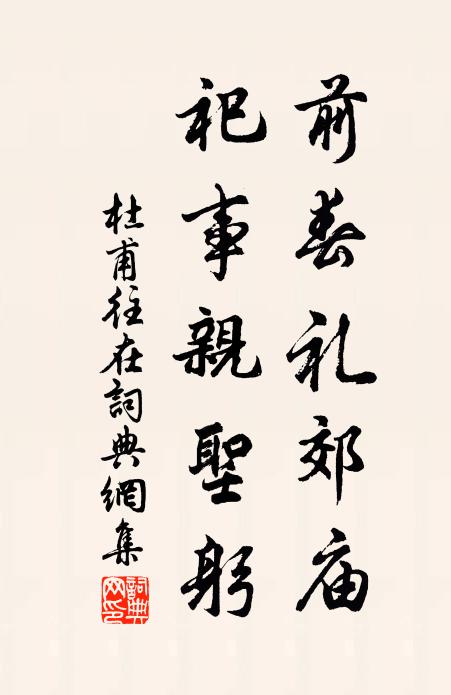 前春礼郊庙
祀事親聖躬
杜甫往在詞典網集
詞典網印